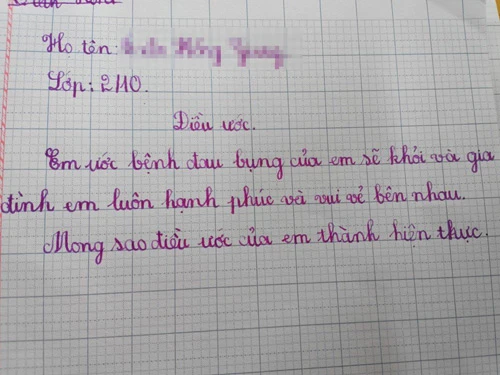 Họ tên:
Lớp: 2/10.
Điều ước.
Em ước bệnh đau bụng của em sẽ khỏi và gia
đình em luôn hạnh phúc và vui vẻ bên nhau.
Mong sao điều ước của em thành hiện thực.